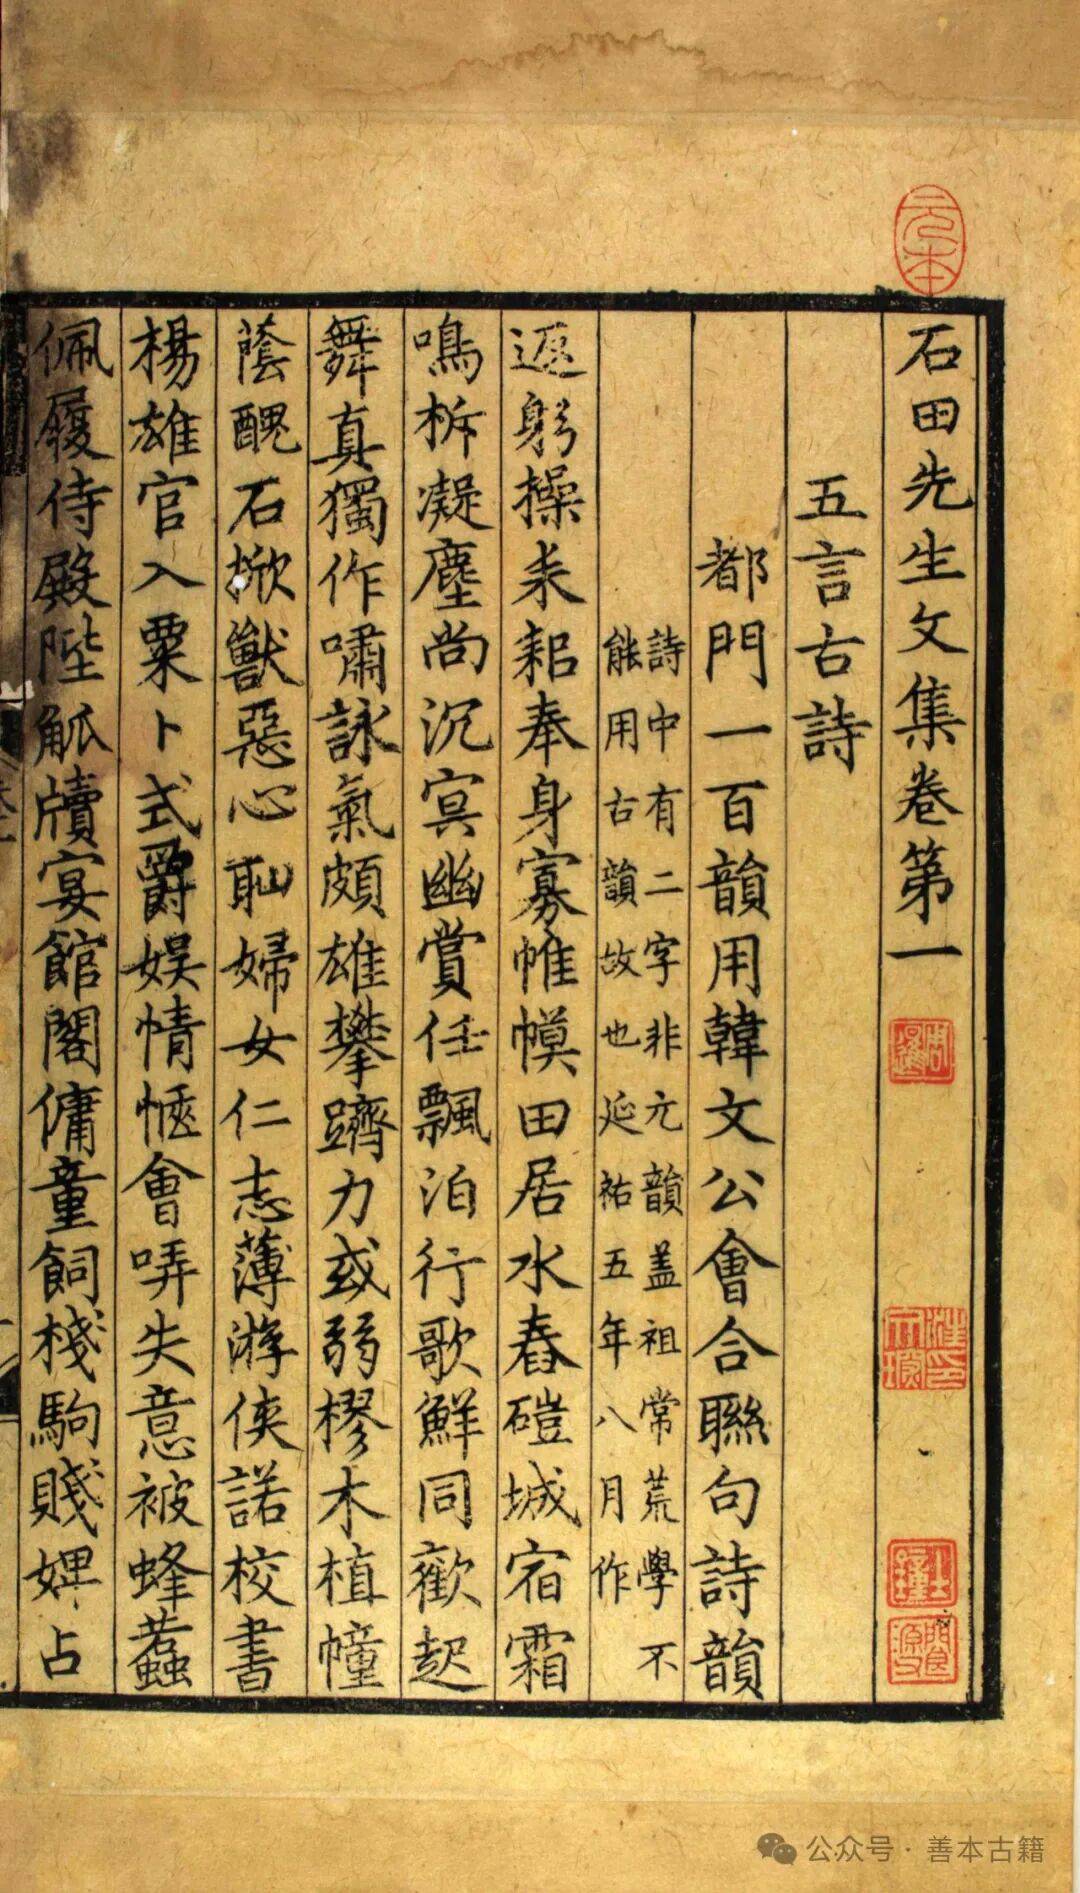 元本
石田先生文集卷第一
五言古詩
都門一百韻用韓文公會合聯句詩韻
詩中有二字非元韻盖祖常荒學不
能用古韻故也延祐五年八月作
躬操耒耜奉身寡帷幙田居水舂磑城宿霜
鳴柝凝塵尚沉冥幽賞任飄泊行歌鮮同歡起
舞真獨作嘯詠氣頗雄攀躋力或弱樛木植幢
蔭醜石掀獸惡心恥婦女仁志薄游俠諾校書
楊雄官入粟卜式爵娱情惬會哢失意被蜂蠚
佩履侍殿陛觚牘宴館閣傭童飼棧駒賤婢占
公众号·善本古籍